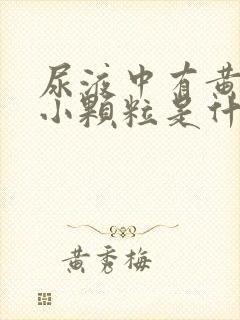 尿液中有黄
小颗粒是什
黄秀梅